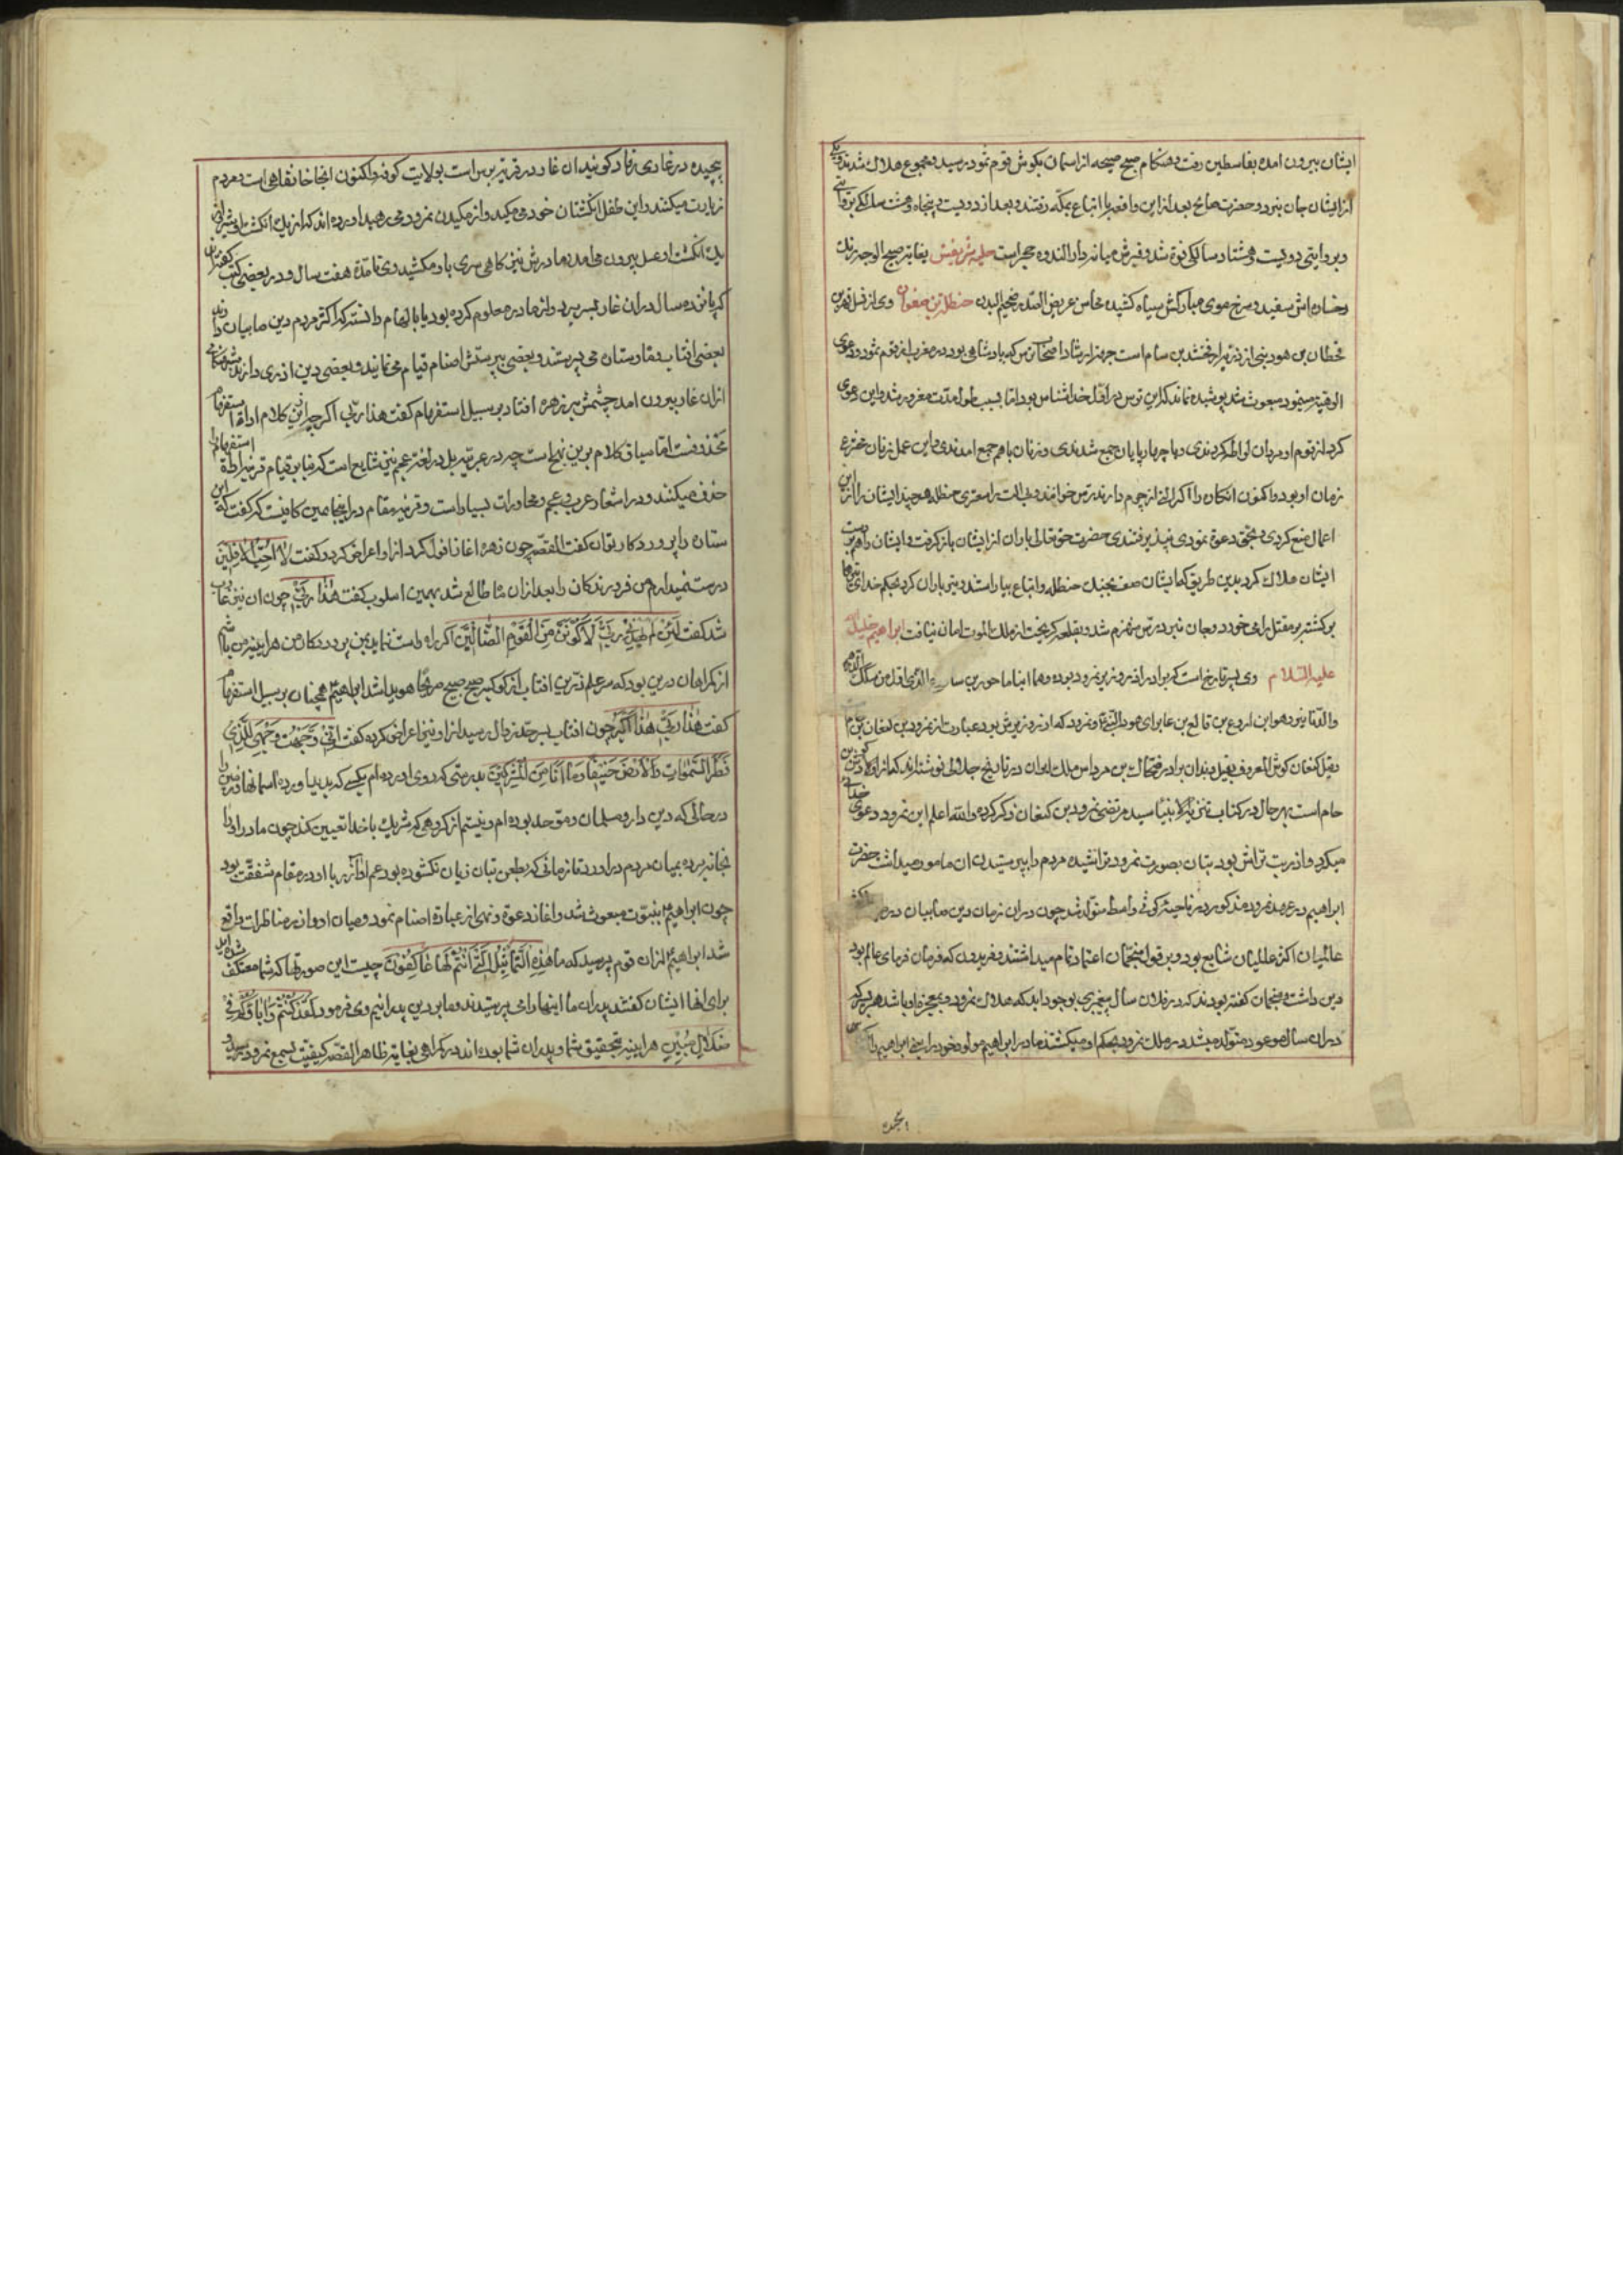 ایشان بیرون امده بفلسطین رفت و هنکام صبح صیحه از اسمان بکوش قوم ثمود رسید و مجموع هلاک شدند و یکی
از ایشان جان نبرد و حضرت صالح بعد از این واقعه با اتباع بمکه رفتند و بعد از دویست و پنجاه و هشت سالکی بروایتی
و بروایتی دویست و هشتاد سالکی فوة شد و قبرش میانه دار الندوه و حجر است حلیه شریفش بغایة صبیح الوجه رنک
رخساره اش سفید و سرخ موی مبارکش سیاه کشیده محاسن عریض الصدر ضخم البدن حنظلة بن صفوان وی از نسل فهر بن
قحطان بن هود نبی از ذریه ارفخشد بن سام است جهة ارشاد اصحاب رس که پادشاهی بود در مغرب از قوم ثمود و دعوی
الوهیة مینمود مبعوث شد پوشیده نماند که این رس در اول خدا شناس بود اما بسبب طول مدت مغرور شد و این دعوی
کرد از قوم او مردان لواطه کردندی و با چهارپایان جمع شدندی و زنان با هم جمع امدندی و این عمل زنان مخترع
زمان او بود و اکنون انکان را اکر التی از چرم دارند رس خوانند و بی الت را سعتری حنظله هر چند ایشان را از این
اعمال منع کردی و بحق دعوة نمودی نپذیرفتندی حضرت حق تعالی باران از ایشان باز کرفت و ایشان را هم بدست
ایشان هلاک کرد بدین طریق که ایشان صف بجنک حنظله و اتباع بیاراستند و تیر باران کرد بحکم خدای تیرها
برکشته بر مقتل رامی خورد و جان نبرد رس منهزم شد و بقلعه کریخت از ملک الموت امان نیافت ابراهیم خلیل
علیه السلام وی پسر تارخ است که برادر اذر وزیر نمرود بوده
والد تا نیز دهو ابن اروع بن قالع بن عابر ای هود النبی و نمرود که اذر وزیرش بود عبارت از نمرود بن کنعان بن
بقول کنعان کوش المعروف بفیل دندان برادر ضحاک بن مرداس ملک ایران در تاریخ جلالی نوشته اند که از اولاد کوش بن
حام است بهر حال در کتاب تنزیه الانبیا سید مرتضی نمرود بن کنعان ذکر کرده و الله اعلم این نمرود دعوی خدائی
میکرد و اذر بت تراش بود بتان بصورت نمرود تراشیده مردم را بپرستیدن ان مامور میداشت حضرت
ابراهیم در عهد نمرود مذکور در ناحیه کوثی واسط متولد شد چون دران زمان دین صابیان در
عالمیان اکثر عالمیان شایع بود و بر قول منجمان اعتماد تمام میداشتند و فریدون که فرمان فرمای عالم بود
دین داشت و منجمان کفته بودند که در فلان سال پیغمبری بوجود اید که هلاک نمرود بمعجزه او باشد هر پسر که
دران سال موعود متولد میشد در ملک نمرود بحکم او میکشتند مادر ابراهیم مولود خود را یعنی ابراهیم را
پیچیده در غاری نهاد کویند ان غار در قریه برس است بولایت کوفه و اکنون انجا خانقاهی است و مردم
زیارت میکنند و این طفل انکشتان خود می مکید و از مکیدن نمرود می رهید اورده اند که از یک انکشت او شیر و از
یک انکشت او عسل بیرون می امد و مادرش نیز کاهی سری باو میکشید وی تا مدة هفت سال و در بعضی کتب کفته اند
که پانزده سال دران غار بسر برد و از مادر معلوم کرده بود یا بالهام دانسته که اکثر مردم دین صابیان دارند
بعضی افتاب و ماه و ستاره می پرستند و بعضی بپرستش اصنام قیام می نمایند و بعضی دین اذری دارند
ازان غار بیرون امد چشمش بر زهره افتاد بر سبیل استفهام کفت هذا ربی اکر چه این کلام اداة استفهام
محذوفست اما سیاق کلام برین نهج است چه در عربیه بل در لغة عجم نیز شایع است که بنا بر قیام قرینه اداة استفهام را
حذف میکنند و در اشعار عرب و عجم و محاورات بسیار است و قرینه مقام در اینجا همین کافیست که کفت که این
ستاره را پروردکار توان کفت القصه چون زهره اغاز افول کرد از او اعراض کرد و کفت لا احب الافلین
دوست نمیدارم من فرو رندکان را بعد ازان ماه طالع شد بهمین اسلوب کفت هذا ربی چون ان نیز غایب
شد کفت لئن لم یهدنی ربی لاکونن من القوم الضالین اکر راه راست ننماید بمن پروردکار من هراینه من باشم
از کمراهان درین بود که سر علم زرین افتاب از کوکبه صبح صریحا هویدا شد ابراهیم همچنان بر سبیل استفهام
کفت هذا ربی هذا اکبر چون افتاب بسر حد زوال رسید از او نیز اعراض کرده کفت انی وجهت وجهی للذی
فطر السموات والارض حنیفا وما انا من المشرکین بدرستی که روی اورده ام بکسی که پدید اورده اسمانها و زمین را
در حالی که دین دار و مسلمان و موحد بوده ام و نیستم از کروهی که شریک با خدا تعیین کند چون مادر او را
بخانه برده بمیان مردم در اورد تا زمانی که بطعن بتان زبان نکشوده بود عم او اذر با او در مقام شفقت بود
چون ابراهیم بنبوت مبعوث شد و اغاز دعوة و نهی از عبادة اصنام نمود و میان او و اذر مناظرات واقع
شد ابراهیم ازان قوم پرسید که ما هذه التماثیل التی انتم لها عاکفون چیست این صورتها که شما معتکف شده اید
برای انها ایشان کفتند پدران ما اینها را می پرستیدند و ما بر دین پدرانیم وی فرمود لقد کنتم انتم واباؤکم فی
ضلال مبین هراینه بتحقیق شما و پدران شما بوده اند در کمراهی بغایة ظاهر القصه کیفیت بسمع نمرود رسید